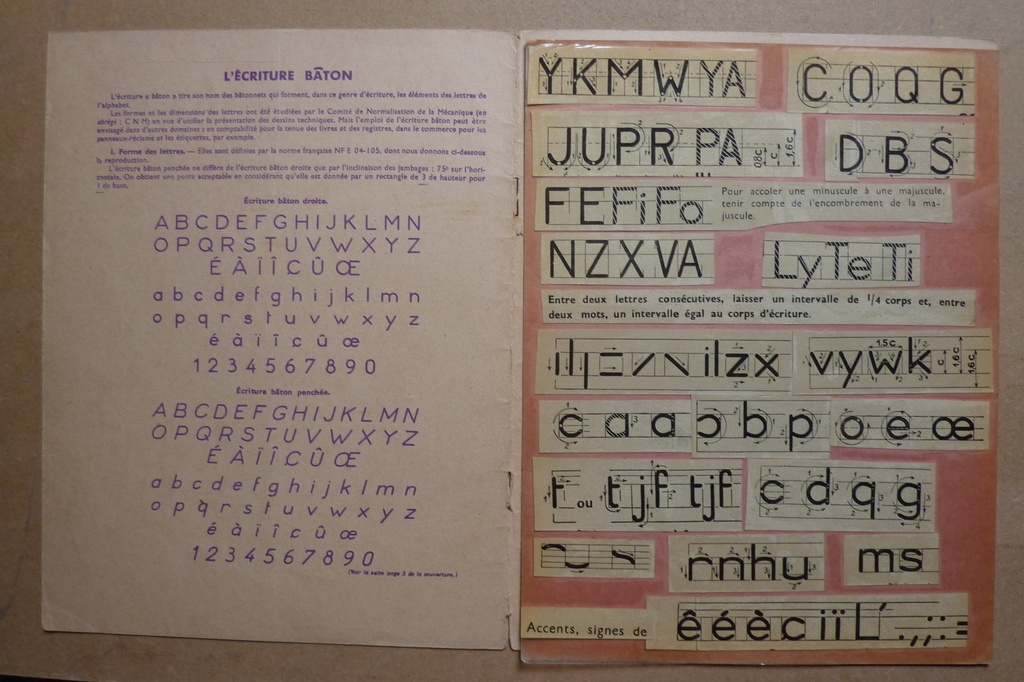 L'ÉCRITURE BÂTON
L'écriture « bâton » tire son nom des bâtonnets qui forment, dans ce genre d'écriture, les éléments des lettres de
l'alphabet.
Les formes et les dimensions des lettres ont été étudiées par le Comité de Normalisation de la Mécanique (en
abrégé : C N M) en vue d'unifier la présentation des dessins techniques. Mais l'emploi de l'écriture bâton peut être
envisagé dans d'autres domaines : en comptabilité pour la tenue des livres et des registres, dans le commerce pour les
panneaux-réclame et les étiquettes, par exemple.
1. Forme des lettres. — Elles sont définies par la norme française NF E 04-105, dont nous donnons ci-dessous
la reproduction.
L'écriture bâton penchée ne diffère de l'écriture bâton droite que par l'inclinaison des jambages : 75° sur l'hori-
zontale. On obtient une pente acceptable en considérant qu'elle est donnée par un rectangle de 3 de hauteur pour
1 de base.
Écriture bâton droite.
A B C D E F G H I J K L M N
O P Q R S T U V W X Y Z
É À Ï Î Ç Û Œ
a b c d e f g h i j k l m n
o p q r s t u v w x y z
é à ï î ç û œ
1 2 3 4 5 6 7 8 9 0
Écriture bâton penchée.
A B C D E F G H I J K L M N
O P Q R S T U V W X Y Z
É À Ï Î Ç Û Œ
a b c d e f g h i j k l m n
o p q r s t u v w x y z
é à ï î ç û œ
1 2 3 4 5 6 7 8 9 0
(Voir la suite page 3 de la couverture.)
YKMWYA COQG
JUPR PA 0,8c c 1,6c DBS
FEFiFo Pour accoler une minuscule à une majuscule,
tenir compte de l'encombrement de la ma-
juscule.
NZXVA LyTeTi
Entre deux lettres consécutives, laisser un intervalle de 1/4 corps et, entre
deux mots, un intervalle égal au corps d'écriture.
ilzx vywk 1,5c c 1,6c 1,6c
c a a b p o e œ
ou tjf tjf c d q g
rnhu ms
Accents, signes de êéèçiïL'